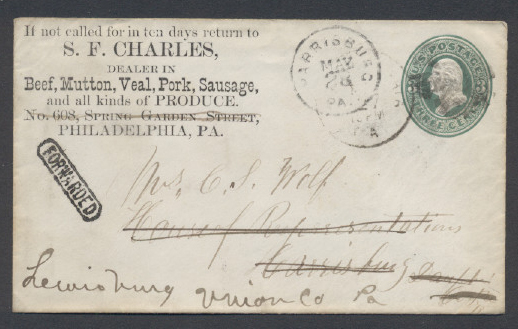 If not called for in ten days return to
S. F. CHARLES,
DEALER IN
Beef, Mutton, Veal, Pork, Sausage,
and all kinds of PRODUCE.
No. 608, SPRING GARDEN STREET,
PHILADELPHIA, PA.
HARRISBURG
MAR
PA
U.S. POSTAGE
THREE CENTS
FORWARDED
C. S. Wolf
House of Representatives
Harrisburg
Lewisburg Union Co Pa